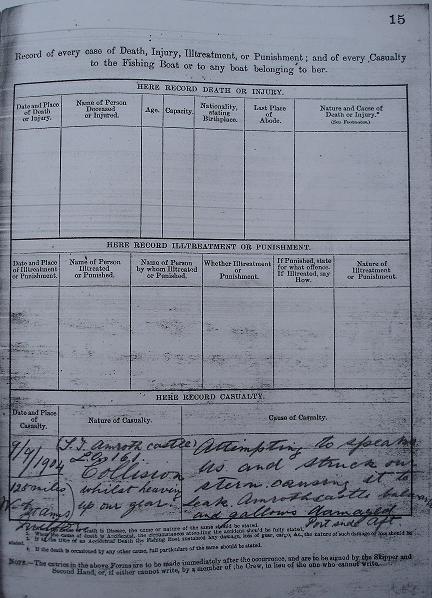 15
Record of every case of Death, Injury, Illtreatment, or Punishment; and of every Casualty
to the Fishing Boat or to any boat belonging to her.
HERE RECORD DEATH OR INJURY.
Date and Place
of Death
or Injury.
Name of Person
Deceased
or Injured.
Age.
Capacity.
Nationality,
stating
Birthplace.
Last Place
of
Abode.
Nature and Cause of
Death or Injury.*
(See Footnotes.)
HERE RECORD ILLTREATMENT OR PUNISHMENT.
Date and Place
of Illtreatment
or Punishment.
Name of Person
Illtreated
or Punished.
Name of Person
by whom Illtreated
or Punished.
Whether Illtreatment
or
Punishment.
If Punished, state
for what offence.
If Illtreated, say
How.
Nature of
Illtreatment
or Punishment.
HERE RECORD CASUALTY.
Date and
Place of
Casualty.
Nature of Casualty.
Cause of Casualty.
9/9/1904
125 miles
W
(S.T. Amroth Castle)
Collision
whilst heaving
up our gear
Attempting to speak
us and struck our
stern causing it to
leak. Amroth Castle
and gallows damaged
Port side aft
1. In case of Death by Disease, the cause or nature of the same should be stated.
4. If the death is occasioned by any other cause, full particulars of the same should be stated.
NOTE.—The entries in the above Forms are to be made immediately after the occurrence, and are to be signed by the Skipper and
Second Hand, or, if either cannot write, by a member of the Crew, in lieu of the one who cannot write.